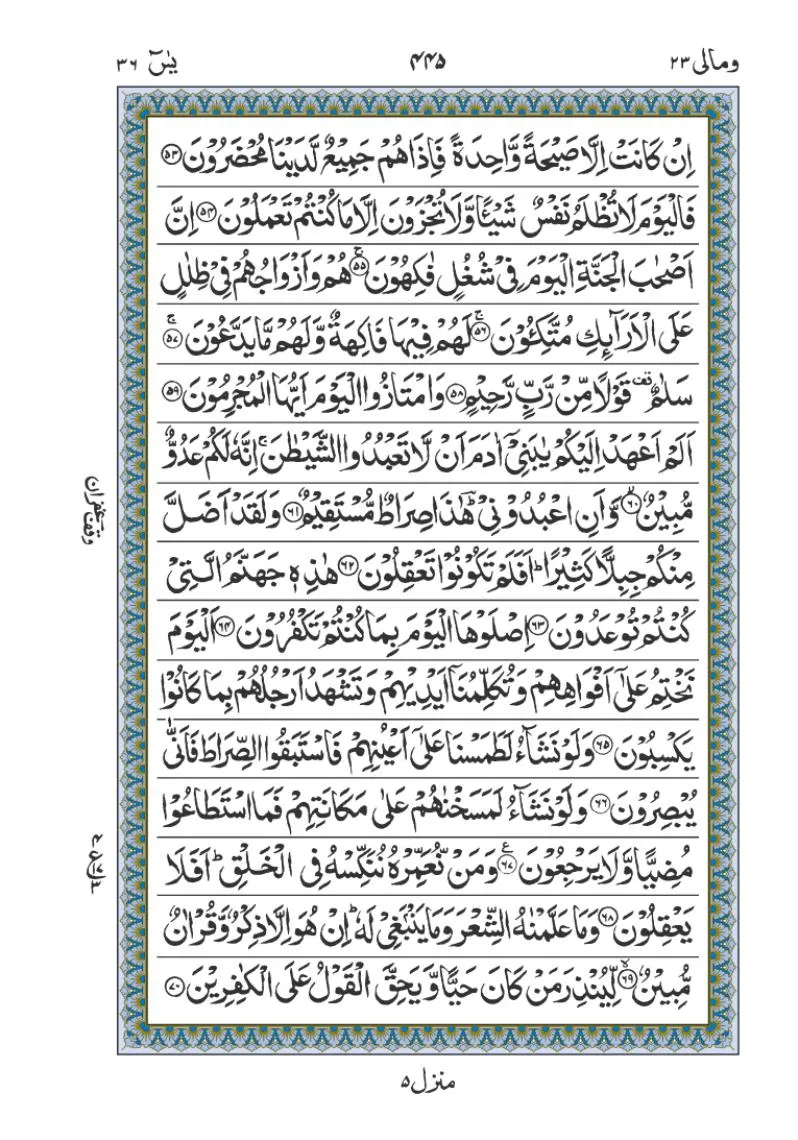 ومالی ٢٣ ۴۴۵ یٰسٓ ٣٦
اِنْ كَانَتْ اِلَّا صَيْحَةً وَّاحِدَةً فَاِذَا هُمْ جَمِيْعٌ لَّدَيْنَا مُحْضَرُوْنَ ﴿۵۳﴾
فَالْيَوْمَ لَا تُظْلَمُ نَفْسٌ شَيْـًٔا وَّلَا تُجْزَوْنَ اِلَّا مَا كُنْتُمْ تَعْمَلُوْنَ ﴿۵۴﴾ اِنَّ
اَصْحٰبَ الْجَنَّةِ الْيَوْمَ فِيْ شُغُلٍ فٰكِهُوْنَ ۚ﴿۵۵﴾ هُمْ وَاَزْوَاجُهُمْ فِيْ ظِلٰلٍ
عَلَى الْاَرَآىِٕكِ مُتَّكِـُٔوْنَ ۚ﴿۵۶﴾ لَهُمْ فِيْهَا فَاكِهَةٌ وَّلَهُمْ مَّا يَدَّعُوْنَ ۚ﴿۵۷﴾
سَلٰمٌ ۫ قَوْلًا مِّنْ رَّبٍّ رَّحِيْمٍ ﴿۵۸﴾ وَامْتَازُوا الْيَوْمَ اَيُّهَا الْمُجْرِمُوْنَ ﴿۵۹﴾
اَلَمْ اَعْهَدْ اِلَيْكُمْ يٰبَنِيْٓ اٰدَمَ اَنْ لَّا تَعْبُدُوا الشَّيْطٰنَ ۚ اِنَّهٗ لَكُمْ عَدُوٌّ
مُّبِيْنٌ ۙ﴿۶۰﴾ وَّاَنِ اعْبُدُوْنِيْ ؔ هٰذَا صِرَاطٌ مُّسْتَقِيْمٌ ﴿۶۱﴾ وَلَقَدْ اَضَلَّ
وقف غفران
مِنْكُمْ جِبِلًّا كَثِيْرًا ؕ اَفَلَمْ تَكُوْنُوْا تَعْقِلُوْنَ ﴿۶۲﴾ هٰذِهٖ جَهَنَّمُ الَّتِيْ
كُنْتُمْ تُوْعَدُوْنَ ﴿۶۳﴾ اِصْلَوْهَا الْيَوْمَ بِمَا كُنْتُمْ تَكْفُرُوْنَ ﴿۶۴﴾ اَلْيَوْمَ
نَخْتِمُ عَلٰٓى اَفْوَاهِهِمْ وَتُكَلِّمُنَآ اَيْدِيْهِمْ وَتَشْهَدُ اَرْجُلُهُمْ بِمَا كَانُوْا
يَكْسِبُوْنَ ﴿۶۵﴾ وَلَوْ نَشَآءُ لَطَمَسْنَا عَلٰٓى اَعْيُنِهِمْ فَاسْتَبَقُوا الصِّرَاطَ فَاَنّٰى
يُبْصِرُوْنَ ﴿۶۶﴾ وَلَوْ نَشَآءُ لَمَسَخْنٰهُمْ عَلٰى مَكَانَتِهِمْ فَمَا اسْتَطَاعُوْا
مُضِيًّا وَّلَا يَرْجِعُوْنَ ۧ﴿۶۷﴾ وَمَنْ نُّعَمِّرْهُ نُنَكِّسْهُ فِي الْخَلْقِ ؕ اَفَلَا
يَعْقِلُوْنَ ﴿۶۸﴾ وَمَا عَلَّمْنٰهُ الشِّعْرَ وَمَا يَنْۢبَغِيْ لَهٗ ؕ اِنْ هُوَ اِلَّا ذِكْرٌ وَّقُرْاٰنٌ
مُّبِيْنٌ ۙ﴿۶۹﴾ لِّيُنْذِرَ مَنْ كَانَ حَيًّا وَّيَحِقَّ الْقَوْلُ عَلَى الْكٰفِرِيْنَ ﴿۷۰﴾
منزل ۵